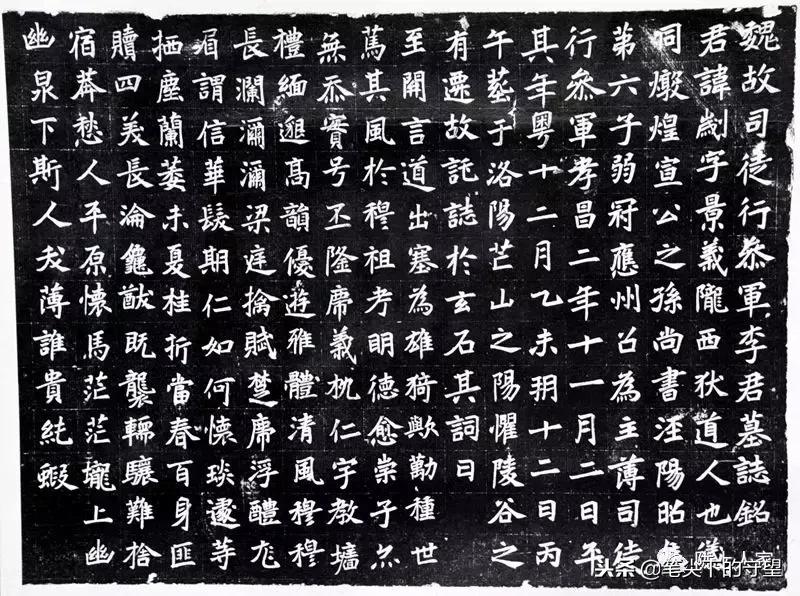 魏故司徒行叅軍李君墓誌銘
君諱字景義隴西狄道人也儀
同燉煌宣公之孫尚書涇陽昭
第六子弱冠應州召為主薄司徒
行叅軍孝昌二年十一月二日卒
其年粵十二月乙未朔十二日丙
午葬于洛陽芒山之陽懼陵谷之
有遷故託誌於玄石其詞曰
至開言道出塞為雄猗歟勤種世
篤其風於穆祖考明德愈崇子尒
無忝實号丕隆席義枕仁宇教墉
禮緬邈高韻優遊雅體清風穆穆
長瀾瀰瀰梁庭擒賦楚席浮醴尨
眉謂信華髮期仁如何懷琰遽等
栖塵蘭萎未夏桂折當春百身匪
贖四美長淪龜猷既襲轜驤難捨
宿莽愁人平原懷馬茫茫壠上幽
幽泉下斯人我薄誰貴純嘏
头条@笔尖下的守望